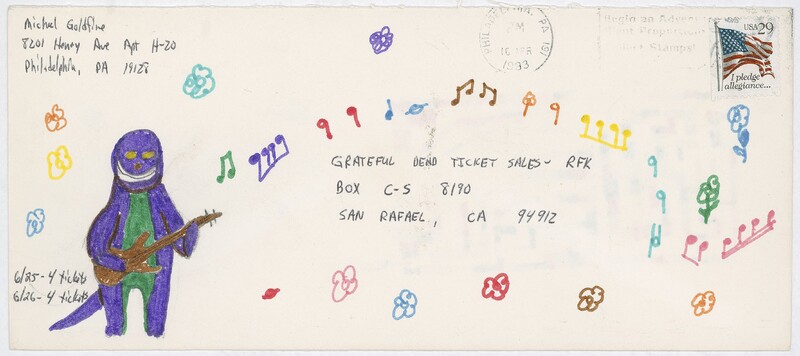 Michael Goldfine
8201 Henry Ave Apt H-20
Philadelphia, PA 19128
PHILADELPHIA, PA 191
PM
16 APR
1993
USA 29
I pledge
allegiance...
GRATEFUL DEAD TICKET SALES- RFK
BOX C-S 8190
SAN RAFAEL, CA 94912
6/25-4 tickets
6/26-4 tickets